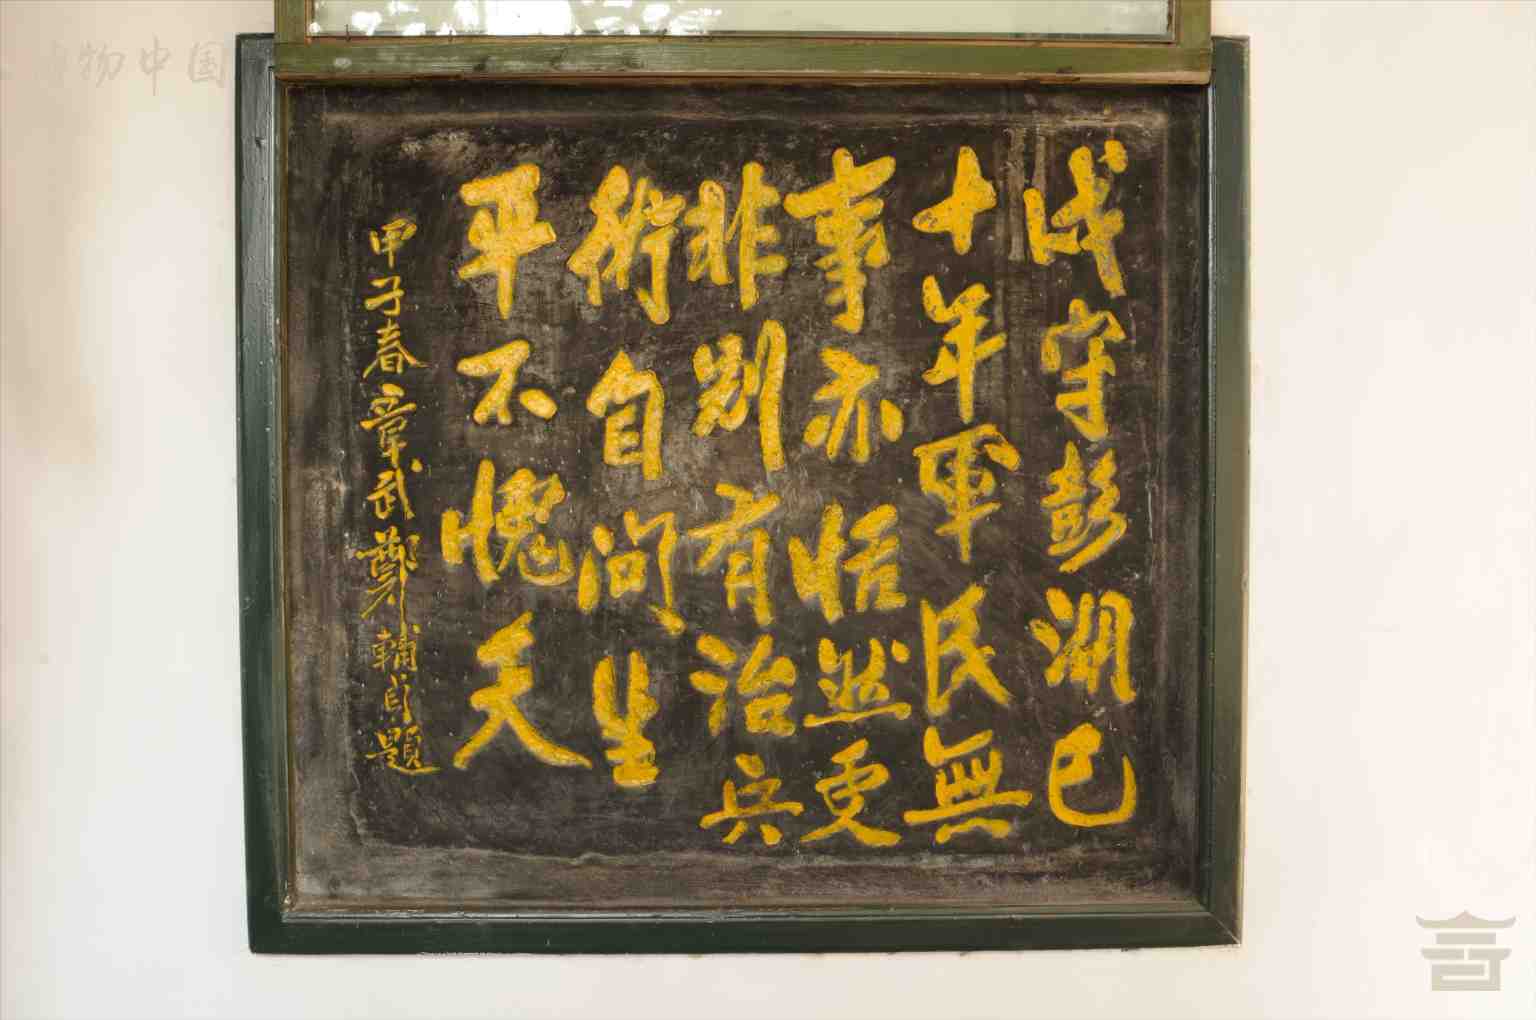 戍守彭湖已
十年軍民無
事亦恬然更
非別有治兵
術自問生
平不愧天
甲子春章武鄭輔題
物中国